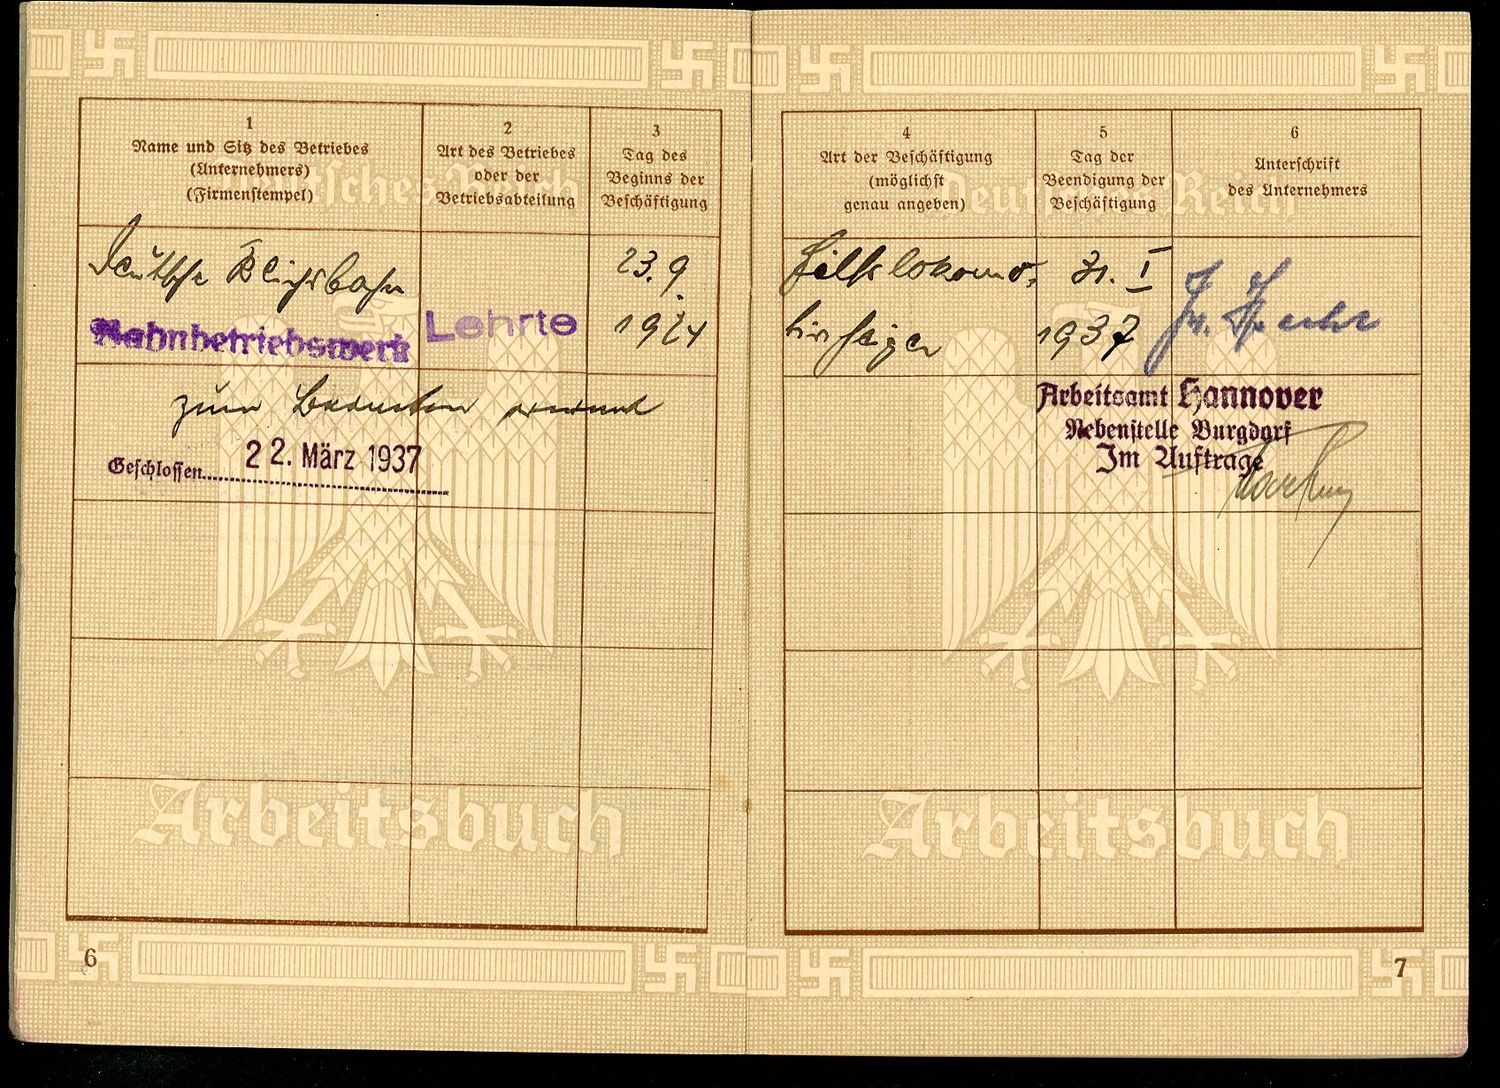 1
Name und Sitz des Betriebes
(Unternehmers)
(Firmenstempel)
2
Art des Betriebes
oder der
Betriebsabteilung
3
Tag des
Beginns der
Beschäftigung
Deutsche Reichsbahn
Bahnbetriebswerk
Lehrte
23.9.
1924
zum Beamten ernannt
Geschlossen
22. März 1937
Deutsches Reich
Arbeitsbuch
6
4
Art der Beschäftigung
(möglichst
genau angeben)
5
Tag der
Beendigung der
Beschäftigung
6
Unterschrift
des Unternehmers
Hilfslokomo-
tivheizer
31. I
1937
Arbeitsamt Hannover
Nebenstelle Burgdorf
Im Auftrage
Deutsches Reich
Arbeitsbuch
7